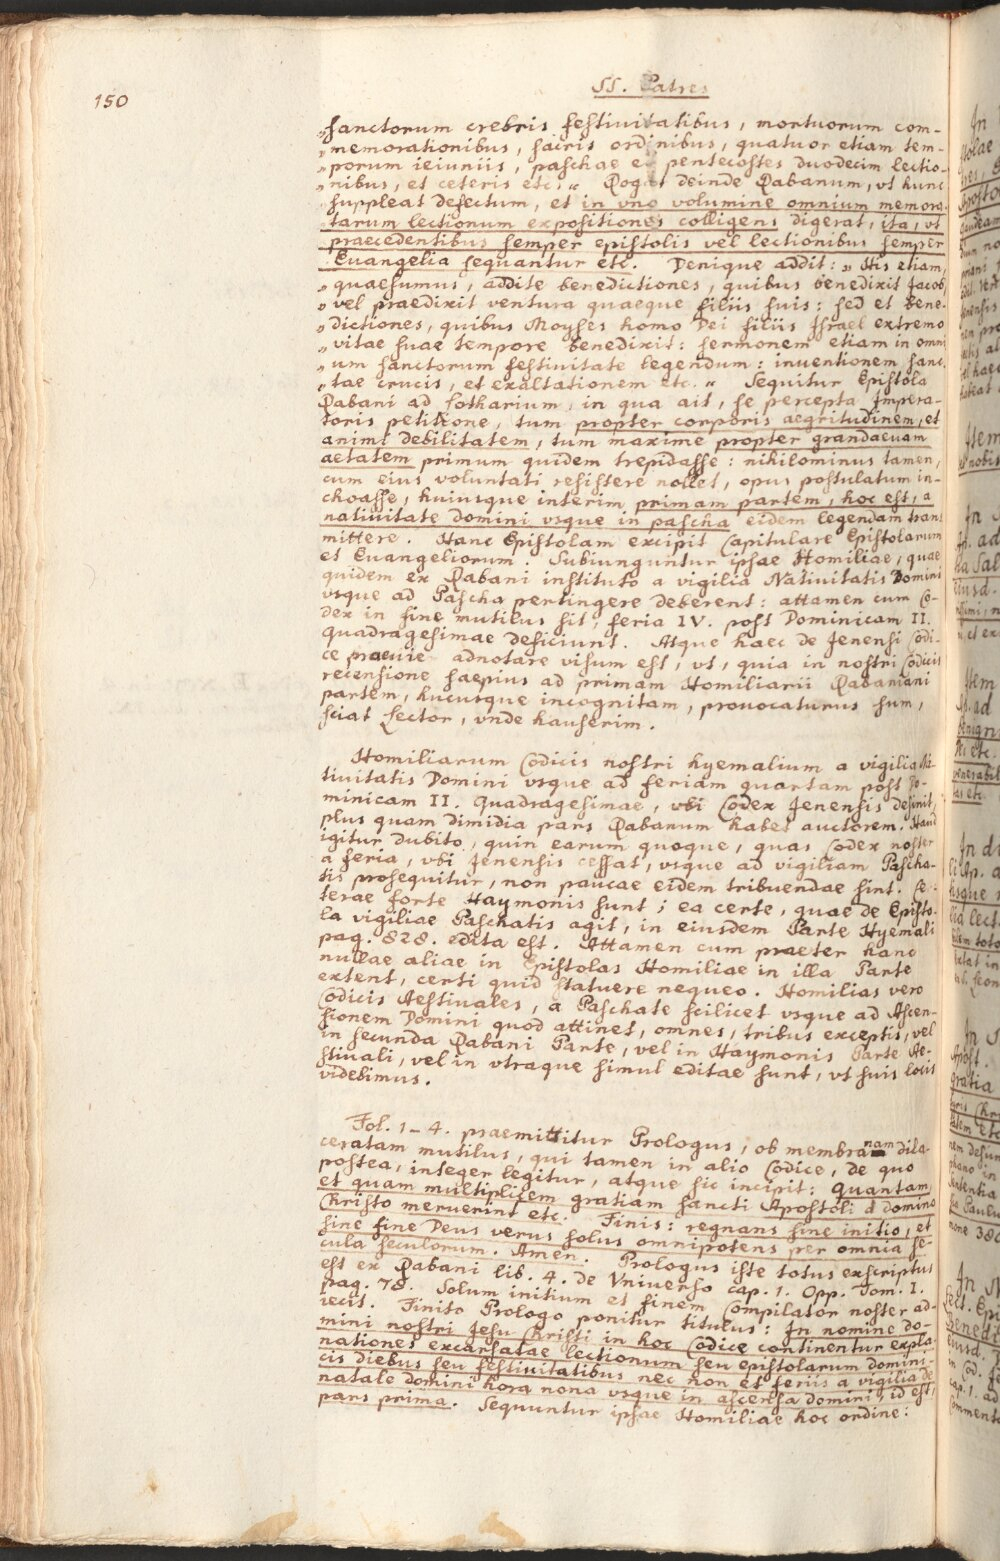 150
SS. Patres
„sanctorum crebris festiuitatibus, mortuorum com-
„memorationibus, sacris ordinibus, quatuor etiam tem-
„porum ieiuniis, paschae et pentecostes duodecim lectio-
„nibus, et ceteris etc.„ Rogat deinde Rabanum, vt hunc
suppleat defectum, et in vno volumine omnium memora-
tarum lectionum expositiones colligens digerat, ita, vt
praecedentibus semper epistolis vel lectionibus semper
Euangelia sequantur etc. Denique addit: „His etiam,
„quaesumus, addite benedictiones, quibus benedixit Jacob,
„vel praedixit ventura quaeque filiis suis: sed et bene-
„dictiones, quibus Moyses homo Dei filiis Israel extremo
„vitae suae tempore benedixit: sermonem etiam in omni-
„um sanctorum festiuitate legendum: inuentionem sanc-
„tae crucis, et exaltationem etc.„ Sequitur Epistola
Rabani ad Lotharium, in qua ait, se percepta Impera-
toris petitione, tum propter corporis aegritudinem, et
animi debilitatem, tum maxime propter grandaeuam
aetatem primum quidem trepidasse: nihilominus tamen,
cum eius voluntati resistere nollet, opus postulatum in-
choasse, huiusque interim primam partem, hoc est, a
natiuitate domini vsque in pascha eidem legendam trans
mittere. Hanc Epistolam excipit Capitulare Epistolarum
et Euangeliorum. Subiunguntur ipsae Homiliae, quae
quidem ex Rabani instituto a vigilia Natiuitatis Domini
vsque ad Pascha pertingere deberent: attamen cum Co-
dex in fine mutilus sit, feria IV. post Dominicam II.
quadragesimae deficiunt. Atque haec de Jenensi Codi-
ce praeuie adnotare visum est, vt, quia in nostri Codicis
recensione saepius ad primam Homiliarii Rabaniani
partem, hucusque incognitam, prouocaturus sum,
sciat Lector, vnde hauserim.
Homiliarum Codicis nostri hyemalium a vigilia Na-
tiuitatis Domini vsque ad feriam quartam post Do-
minicam II. Quadragesimae, vbi Codex Jenensis desinit,
plus quam dimidia pars Rabanum habet auctorem. Haud
igitur dubito, quin earum quoque, quas Codex noster
a feria, vbi Jenensis cessat, vsque ad vigiliam Pascha-
tis prosequitur, non paucae eidem tribuendae sint. Ce-
terae forte Haymonis sunt; ea certe, quae de Episto-
la vigiliae Paschatis agit, in eiusdem Parte Hyemali
pag. 828. edita est. Attamen cum praeter hanc
nullae aliae in Epistolas Homiliae in illa Parte
extent, certi quid statuere nequeo. Homilias vero
Codicis Aestiuales, a Paschate scilicet vsque ad Ascen-
sionem Domini quod attinet, omnes, tribus exceptis, vel
in secunda Rabani Parte, vel in Haymonis Parte Ae-
stiuali, vel in vtraque simul editae sunt, vt suis locis
videbimus.
Fol. 1-4. praemittitur Prologus, ob membranam dila-
ceratam mutilus, qui tamen in alio Codice, de quo
postea, integer legitur, atque sic incipit: Quantam,
et quam multiplicem gratiam sancti Apostoli a domino
Christo meruerint etc. Finis: regnans sine initio, et
sine fine Deus verus solus omnipotens per omnia se-
cula seculorum. Amen. Prologus iste totus exscriptus
est ex Rabani lib. 4. de Vniuerso cap. 1. Opp. Tom. I.
pag. 78. Solum initium et finem Compilator noster ad-
iecit. Finito Prologo ponitur titulus: In nomine do-
mini nostri Jesu Christi in hoc Codice continentur expla-
nationes excarsatae lectionum seu epistolarum domini-
cis diebus seu festiuitatibus nec non et feriis a vigilia de
natale domini hora nona vsque in ascensa domini, id est,
pars prima. Sequuntur ipsae Homiliae hoc ordine: